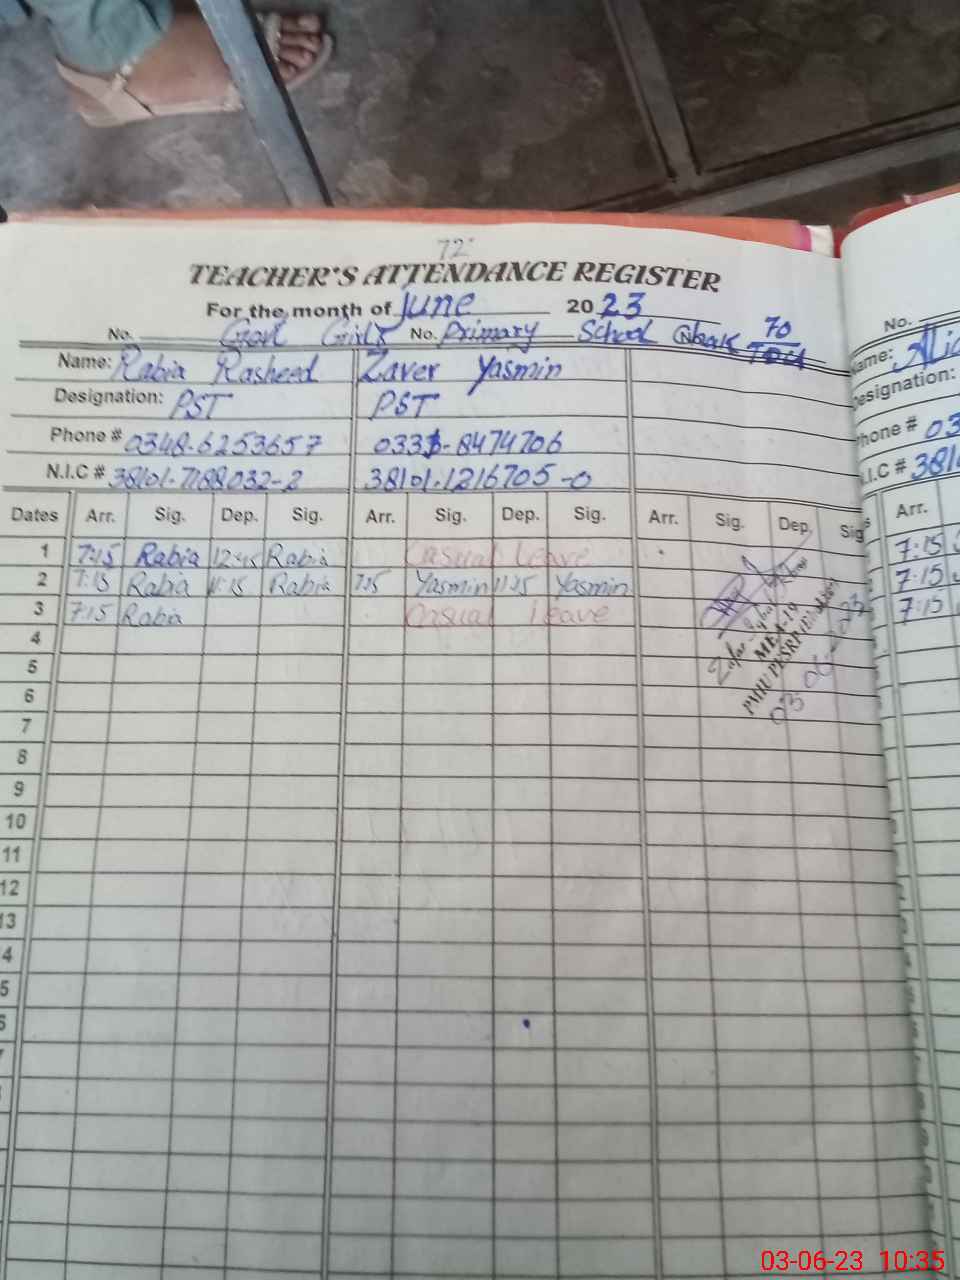 72
TEACHER'S ATTENDANCE REGISTER
For the month of June 2023
No. Govt Girls No. Primary School Chak 70
Name: Rabia Rasheed Zaver Yasmin
Designation: PST PST
Phone # 0348-6253657 0333-8474706
N.I.C # 38101-7188032-2 38101-1216705-0
Dates Arr. Sig. Dep. Sig. Arr. Sig. Dep. Sig. Arr. Sig. Dep. Sig
1 7:15 Rabia 12:45 Rabia Casual Leave
2 7:15 Rabia 11:15 Rabia 7:15 Yasmin 11:15 Yasmin
3 7:15 Rabia Casual Leave
4
5
6
7
8
9
10
11
12
13
4
5
MEA-19
03-06-2023
No.
Name:
esignation:
hone # 03
.I.C # 381
Arr.
7:15
7:15
7:15
03-06-23 10:35